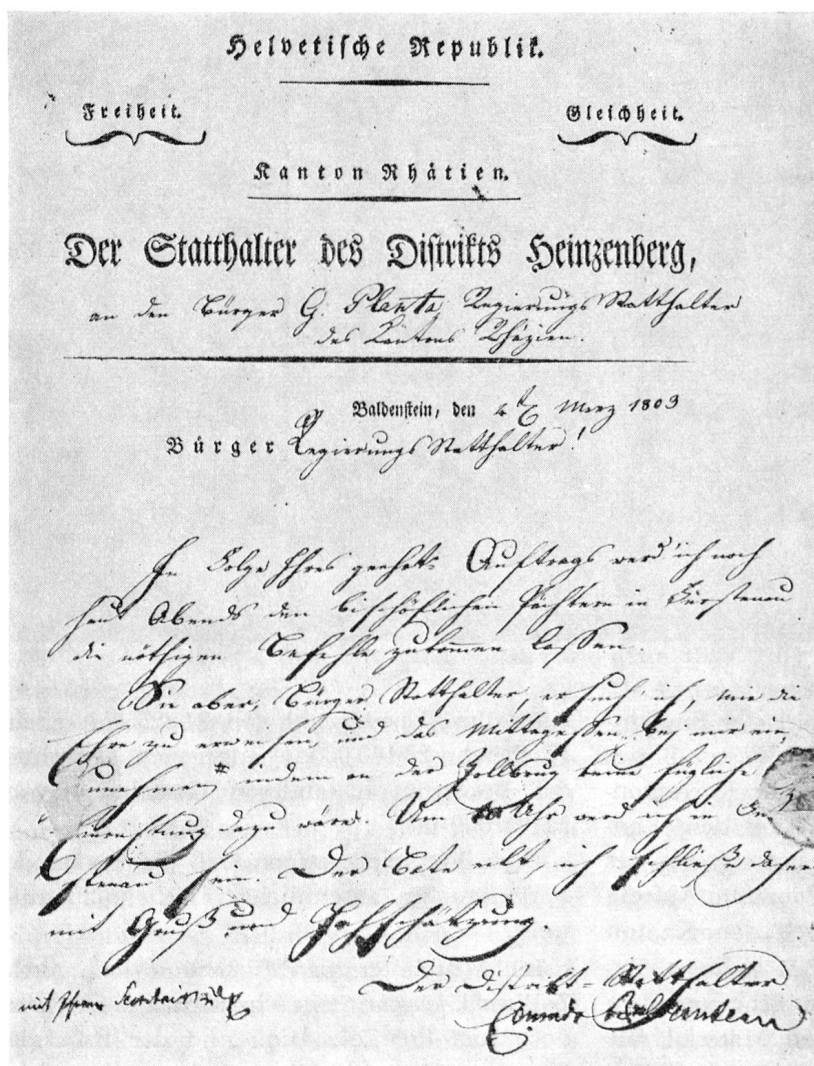 Helvetische Republik.
Freiheit.
Gleichheit.
Kanton Rhätien.
Der Statthalter des Distrikts Heinzenberg,
an den Bürger G. Planta, Regierungs Statthalter
des Kantons Rhäzien.
Baldenstein, den März 1803
Bürger Regierungs Statthalter!
In Folge Ihres geehrt: Auftrags werd ich noch
heut Abends den bischöflichen Pächtern in Fürstenau
die nöthigen Befehle zukomen lassen
Sie aber, Bürger Statthalter, ersuch ich, mir die
Ehre zu erweisen und das Mittagessen bej mir ein
zunehmen, indem an der Zollbrug keine fügliche
dazu wäre. Um Uhr werd ich in
sein. Der Bote eilt, ich schließe daher
mit Gruß und Hochschätzung
Der Distrikt-Statthalter
Conradi
mit Ihrem